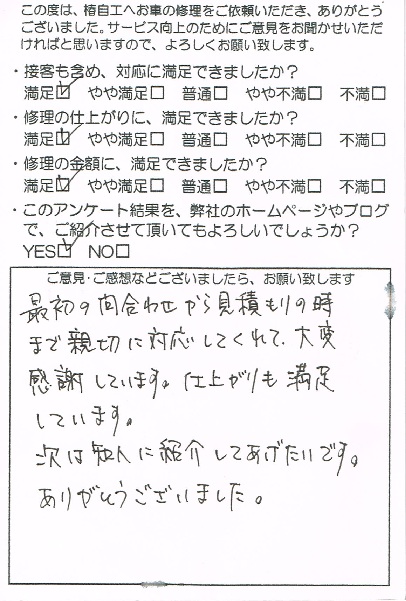 この度は、椿自工へお車の修理をご依頼いただき、ありがとう
ございました。サービス向上のためにご意見をお聞かせいただ
ければと思いますので、よろしくお願い致します。
・接客も含め、対応に満足できましたか？
満足☑ やや満足□ 普通□ やや不満□ 不満□
・修理の仕上がりに、満足できましたか？
満足☑ やや満足□ 普通□ やや不満□ 不満□
・修理の金額に、満足できましたか？
満足☑ やや満足□ 普通□ やや不満□ 不満□
・このアンケート結果を、弊社のホームページやブログ
で、ご紹介させて頂いてもよろしいでしょうか？
YES☑ NO□
ご意見・ご感想などございましたら、お願い致します
最初の問合わせから見積もりの時
まで親切に対応してくれて、大変
感謝しています。仕上がりも満足
しています。
次は知人に紹介してあげたいです。
ありがとうございました。